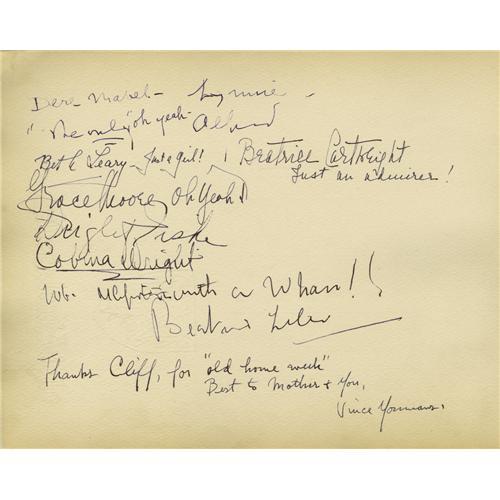 Dere Mabel -
"The only" oh yeah
Beth Leary - Just a girl!
Beatrice Cartwright
Just an admirer!
Grace Moore, Oh Yeah!
Dwight Fiske
Cobina Wright
with a Wham!!
Beatrice Lillie
Thanks Cliff, for "old home week"
Best to Mother & You,
Vince Youmans.